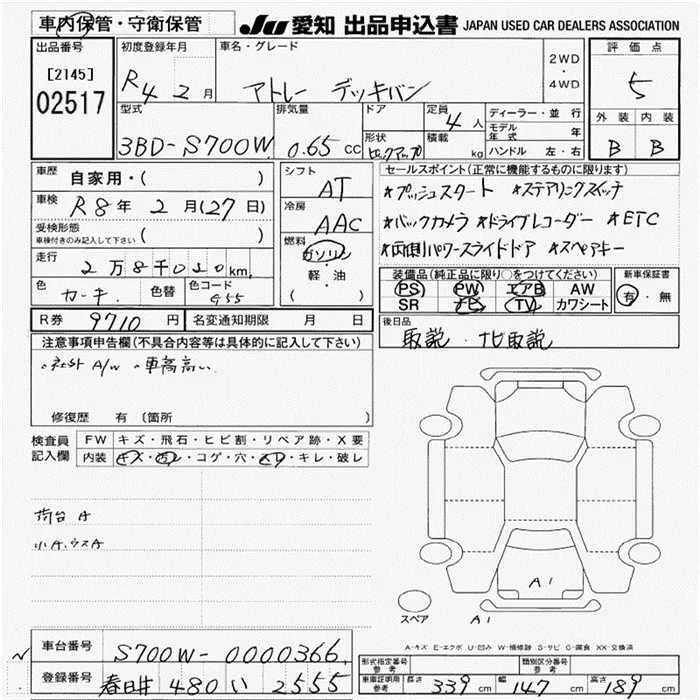 車内保管・守衛保管
JU 愛知 出品申込書 JAPAN USED CAR DEALERS ASSOCIATION
出品番号
[2145]
02517
初度登録年月
R 4 2 月
車名・グレード
アトレー デッキバン
2WD
・
4WD
評価点
5
外装 内装
B B
型式
3BD-S700W
排気量
0.65 CC
ドア
形状
ピックアップ
定員 4 人
積載 kg
ディーラー・並行
モデル年式 年
ハンドル 左・右
車歴
自家用・( )
車検 R 8 年 2 月 (27 日)
受検形態
車検付きのみ記入して下さい ( )
走行
2万8千020km
色 カーキ. 色替 色コード G55
シフト
AT
冷房
AAC
燃料
ガソリン
・
軽・油
( )
セールスポイント(正常に機能するものに限ります)
*プッシュスタート *ステアリングスイッチ
*バックカメラ *ドライブレコーダー *ETC
*両側パワースライドドア *スペアキー
装備品(純正品に限り○をつけてください)
PS PW エアB AW
SR ナビ TV カワシート
新車保証書
有・無
R券 9710 円 名変通知期限 月 日
後日品
取説・ナビ取説
注意事項申告欄(不具合内容等は具体的に記入して下さい)
・社外 A/W ・車高高い
修復歴 有 (箇所 )
検査員記入欄
FW キズ・飛石・ヒビ割・リペア跡・X要
内装 キズ・汚レ・コゲ・穴・スレ・キレ・破レ
荷台 A
小A.ウスA
A1
スペア
A1
A-キズ E-エクボ U-凹み W-補修跡 S-サビ C-腐食 XX-交換済
車台番号 S700W-0000366
登録番号 春日井 480 い 2555
形式指定番号 参考
類別区分番号 参考
車庫証明用参考 長さ 339 cm 幅 147 cm 高さ 189 cm